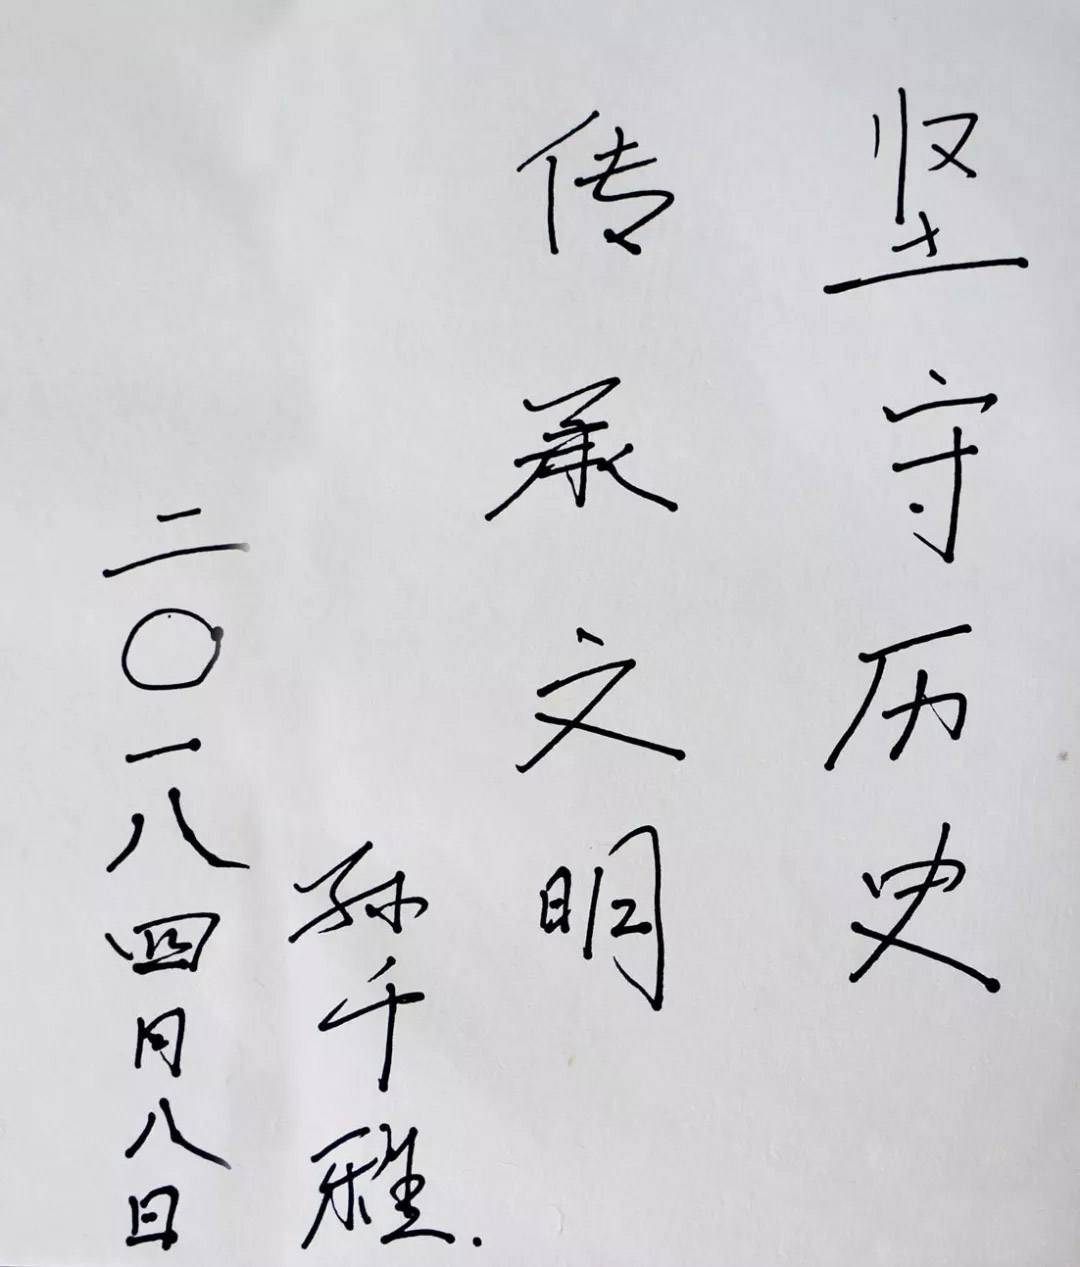 坚守历史
传承文明
孙千雅.
二〇一八四月八日